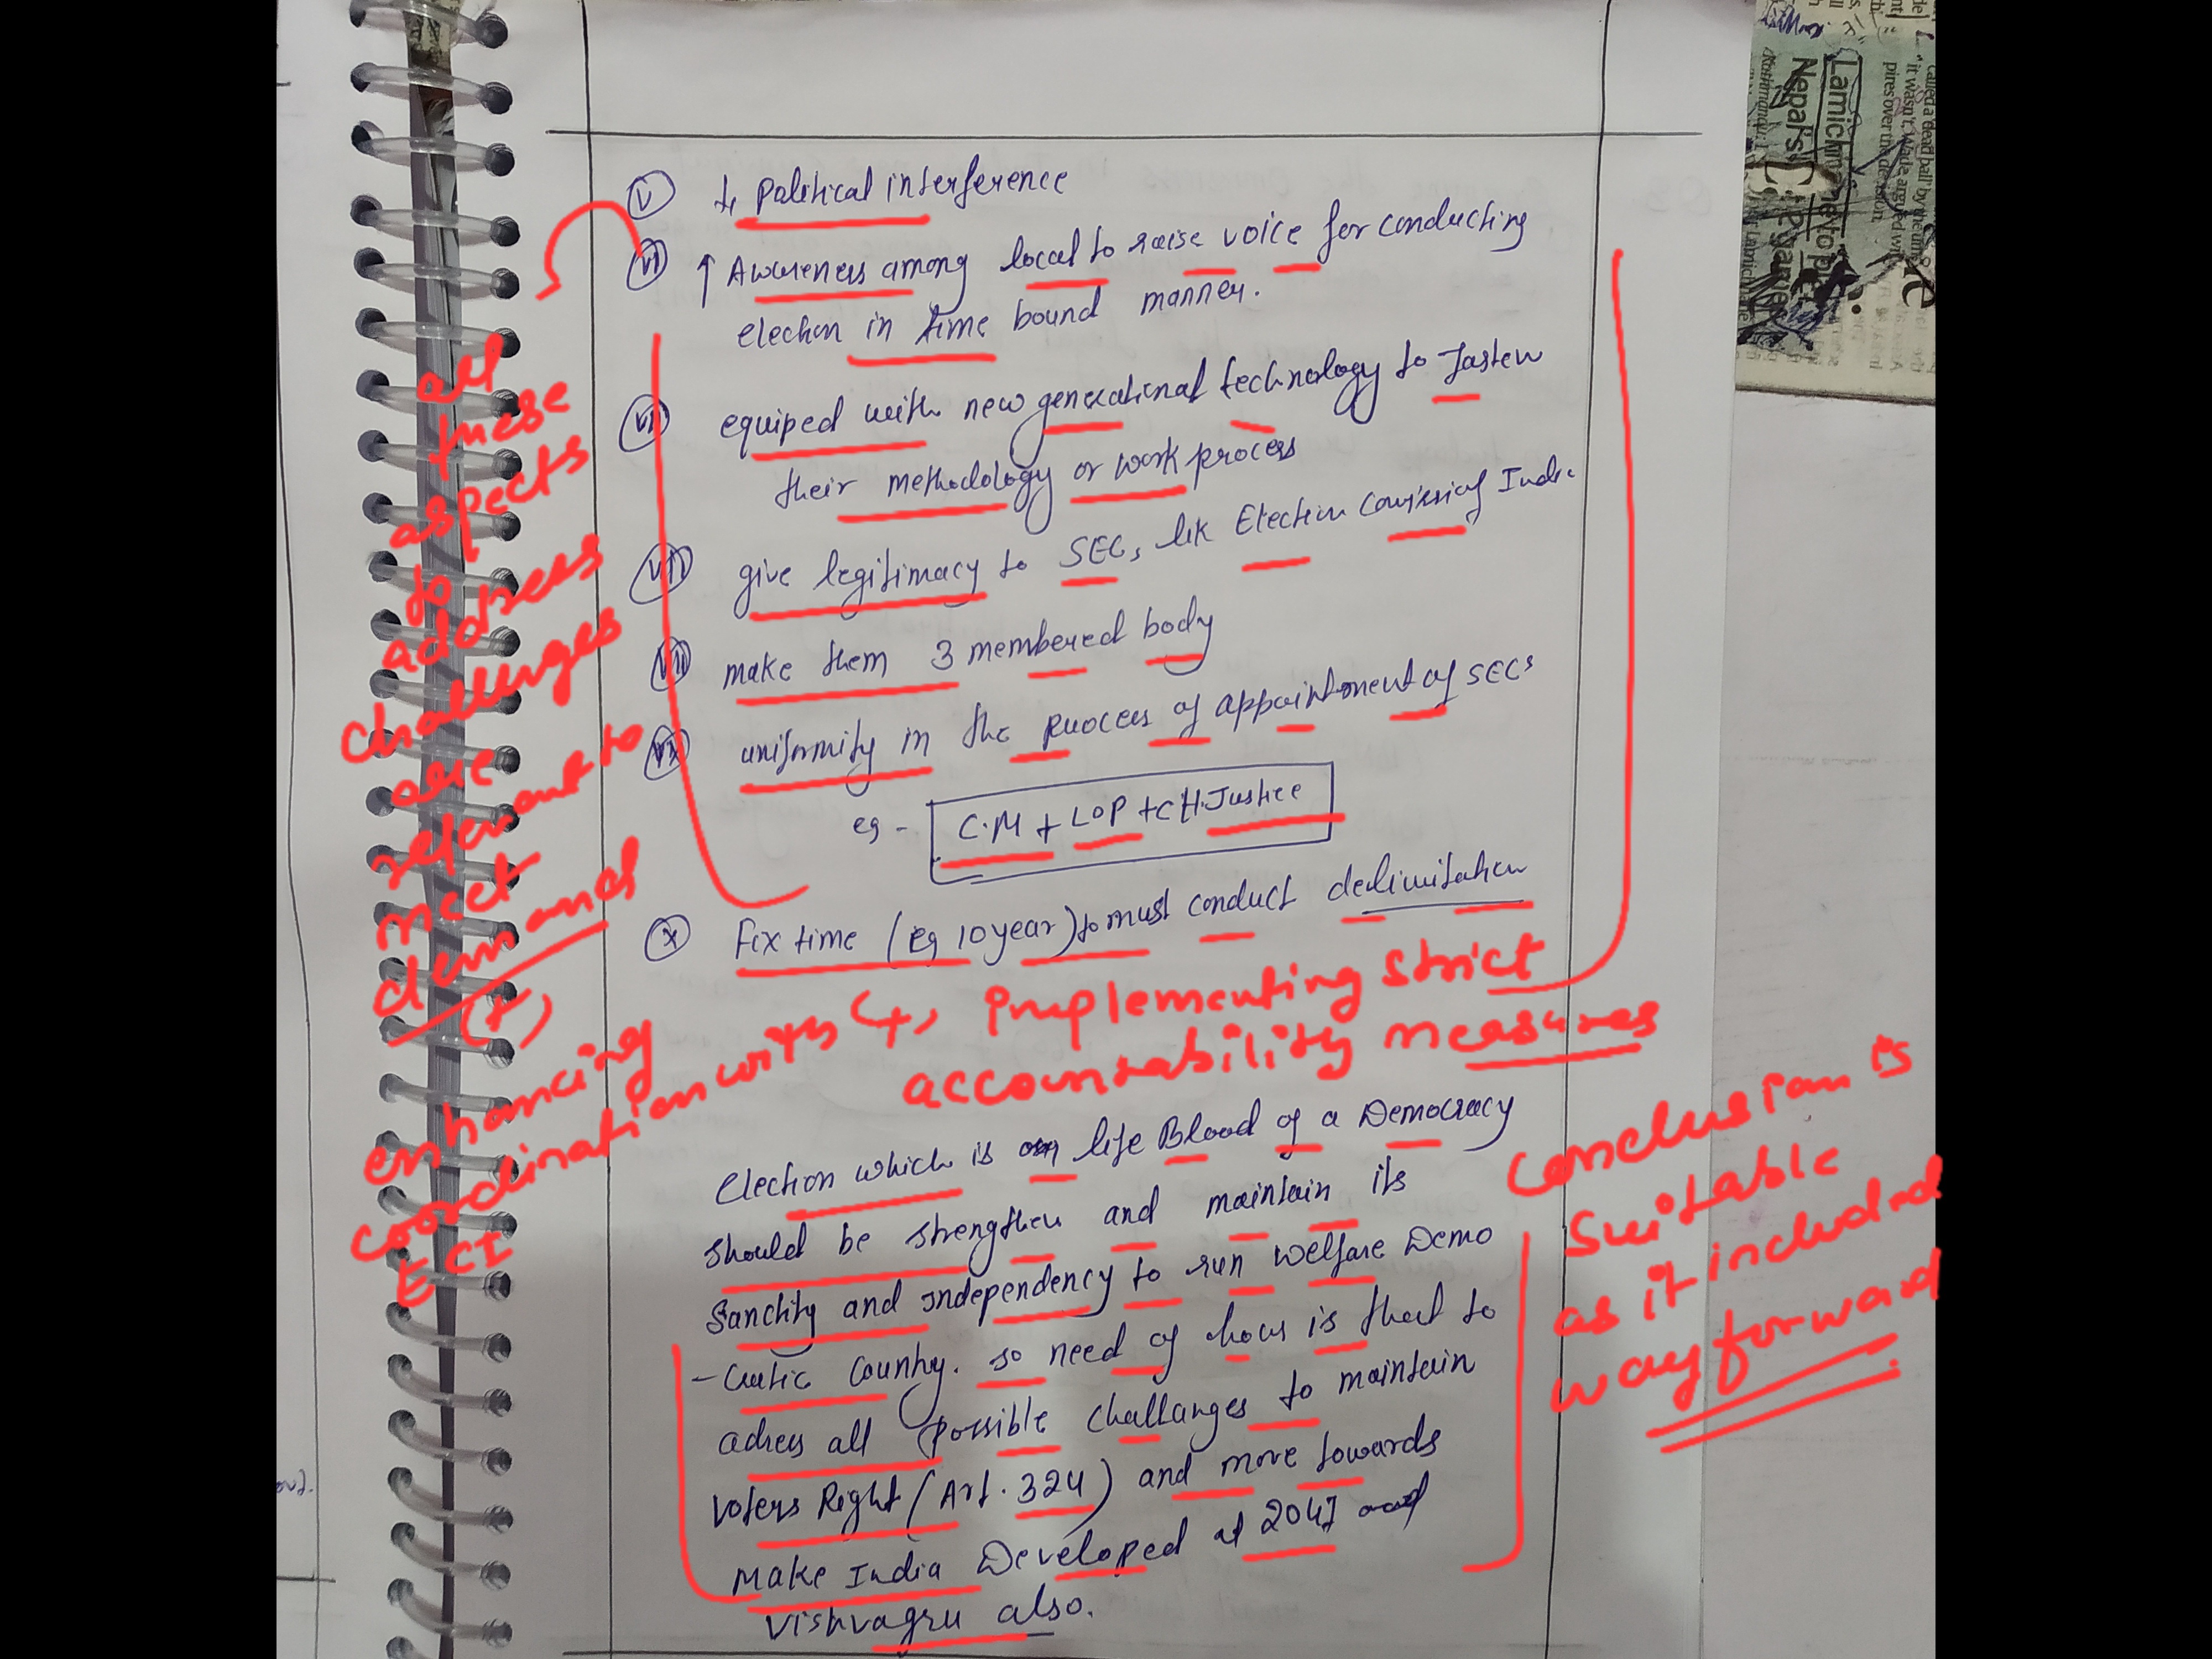 (v) ↓ Political interference
(vi) ↑ Awareness among local to raise voice for conducting
election in time bound manner.
(vii) equiped with new generational technology to fasten
their methodology or work process
(viii) give legitimacy to SEC, lik Election Commission of India
make them 3 membered body
uniformity in the process of appointment of SECs
eg - C.M + LOP + CH.Justice
(x) Fix time (eg 10 year) to must conduct delimitation
all
these
aspects
to
address
challenges
are
relevant to
meet
demand
(+)
enhancing
coordination with
ECI
↳, implementing strict
accountability measures
Election which is life Blood of a Democracy
should be strengthen and maintain its
Sanctity and independency to run welfare Demo
-cratic Country. so need of hour is that to
adress all possible challanges to maintain
Voters Right (Art. 324) and move towards
Make India Developed at 2047 and
Vishvagru also.
Conclusion is
suitable
as it included
way forward
Lamichhane to
Nepal's